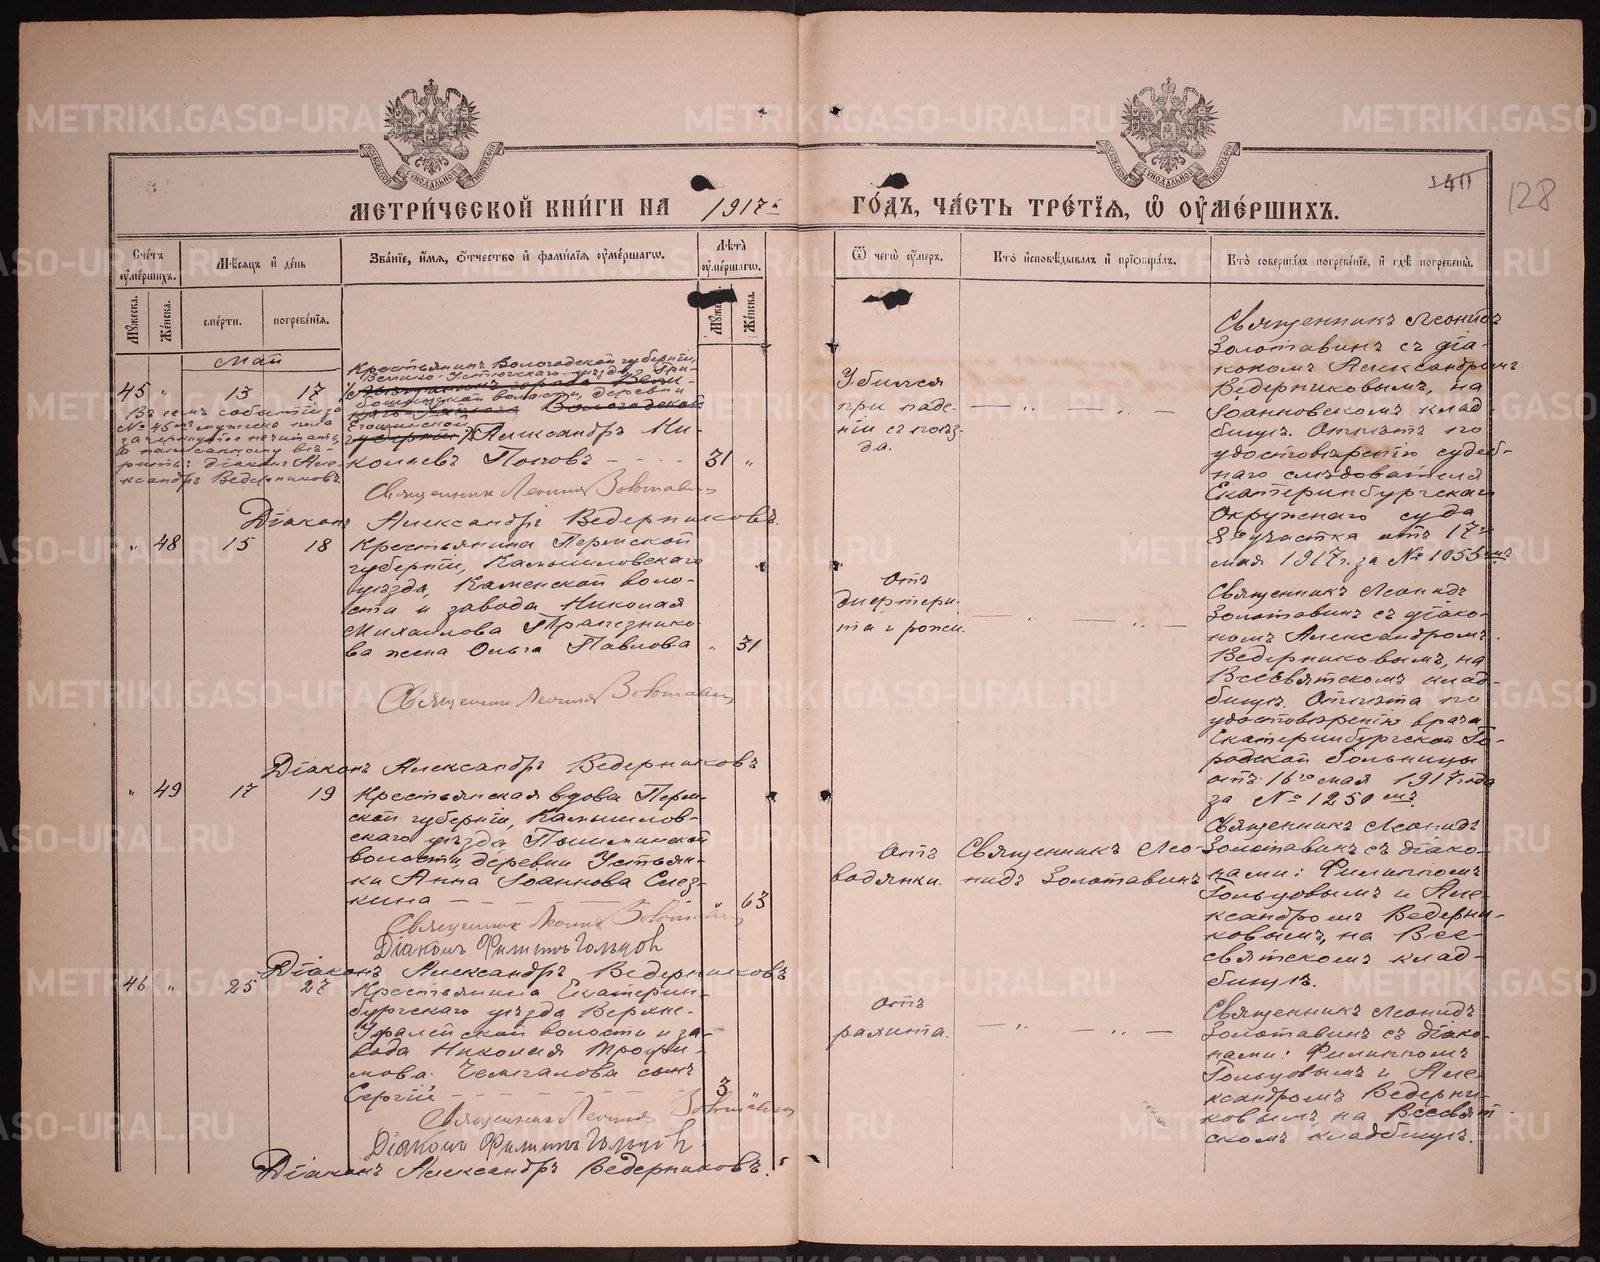 МЕТРИ́ЧЕСКОЙ КНИ́ГИ НА 1917й ГО́ДЪ, ЧА́СТЬ ТРЕ́ТЇѦ, Ѡ ОУМЕ́РШИХЪ.
128
Сче́тъ оуме́ршихъ.
Мѣ́сѧцъ и де́нь
Зва́нїе, и́мѧ, ѻ́тчество и фами́лїѧ оуме́ршагѡ.
Лѣ́та оуме́ршагѡ.
Ѿ чегѡ̀ оу́меръ.
Кто̀ и҆сповѣ́дывалъ и прїѡбща́лъ.
Кто̀ соверша́лъ погребе́нїе, и гдѣ̀ погребены̀.
Мꙋ́жеска.
Же́нска.
сме́рти.
погребе́нїѧ.
Мꙋ́жес.
Же́нска.
Май
45 " 13 17
Крестьянинъ Вологодской губерніи,
Велико-Устюжскаго уѣзда,
волости, деревни
губерніи Александръ Ни-
колаевъ Поповъ - - - 31 "
Въ семъ событіи за
№ 45мъ мужеско пола
зачеркнутое не читать,
а написанному вѣ-
рить: діаконъ Але-
ксандръ Ведерниковъ.
Священникъ Леонидъ Золотавинъ
Діаконъ Александръ Ведерниковъ.
Убился
при паде-
ніи съ поѣз-
да.
Священникъ Леонидъ
Золотавинъ съ діа-
кономъ Александромъ
Ведерниковымъ, на
Іоанновскомъ клад-
бищѣ. Отпѣтъ по
удостовѣренію судеб-
наго слѣдователя
Екатеринбургскаго
Окружнаго суда
8го участка отъ 17го
мая 1917г. за № 1055мъ.
" 48 15 18
Крестьянина Пермской
губерніи, Камышловскаго
уѣзда, Каменской воло-
сти и завода Николая
Михаилова Трапезнико-
ва жена Ольга Павлова " 31
Священникъ Леонидъ Золотавинъ
Діаконъ Александръ Ведерниковъ
Отъ
дифтери-
та и рожи.
Священникъ Леонидъ
Золотавинъ съ діако-
номъ Александромъ
Ведерниковымъ, на
Всесвятскомъ клад-
бищѣ. Отпѣта по
удостовѣренію врача
Екатеринбургской Го-
родской больницы
отъ 16го мая 1917 года
за № 1250мъ.
" 49 17 19
Крестьянская вдова Перм-
ской губерніи, Камышлов-
скаго уѣзда, Пышминской
волости, деревни Устьян-
ки Анна Іоаннова Слез-
кина - - - " 63
Священникъ Леонидъ Золотавинъ
Діаконъ Филиппъ Гольцовъ
Діаконъ Александръ Ведерниковъ
Отъ
водянки.
Священникъ Лео-
нидъ Золотавинъ
Священникъ Леонидъ
Золотавинъ съ діако-
нами: Филиппомъ
Гольцовымъ и Але-
ксандромъ Ведерни-
ковымъ, на Все-
святскомъ клад-
бищѣ.
46 " 25 27
Крестьянина Екатерин-
бургскаго уѣзда Верхне-
Уфалейской волости и за-
вода Николая Трофи-
мова сынъ
Сергій - - - 3 "
Священникъ Леонидъ Золотавинъ
Діаконъ Филиппъ Гольцовъ
Діаконъ Александръ Ведерниковъ.
Отъ
рахита.
Священникъ Леонидъ
Золотавинъ съ діако-
нами: Филиппомъ
Гольцовымъ и Але-
ксандромъ Ведерни-
ковымъ на Всесвят-
скомъ кладбищѣ.
METRIKI.GASO-URAL.RU